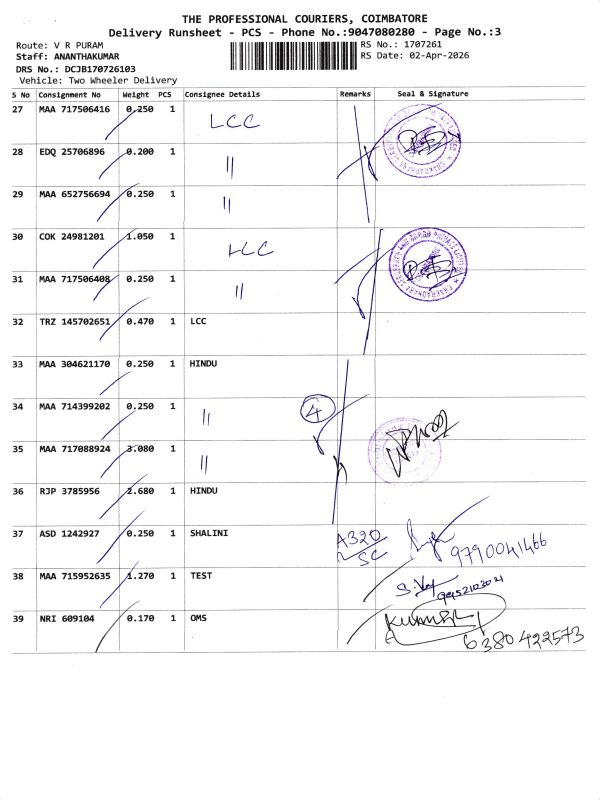 THE PROFESSIONAL COURIERS, COIMBATORE
Delivery Runsheet - PCS - Phone No.:9047080280 - Page No.:3
Route: V R PURAM
RS No.: 1707261
Staff: ANANTHAKUMAR
RS Date: 02-Apr-2026
DRS No.: DCJB170726103
Vehicle: Two Wheeler Delivery
S No Consignment No Weight PCS Consignee Details Remarks Seal & Signature
27 MAA 717506416 0.250 1 LCC
28 EDQ 25706896 0.200 1 "
29 MAA 652756694 0.250 1 "
30 COK 24981201 1.050 1 LCC
31 MAA 717506408 0.250 1 "
32 TRZ 145702651 0.470 1 LCC
33 MAA 304621170 0.250 1 HINDU
34 MAA 714399202 0.250 1 " 4
35 MAA 717088924 3.080 1 "
36 RJP 3785956 2.680 1 HINDU
37 ASD 1242927 0.250 1 SHALINI A320 SC 9790041466
38 MAA 715952635 1.270 1 TEST
39 NRI 609104 0.170 1 OMS 6380422573